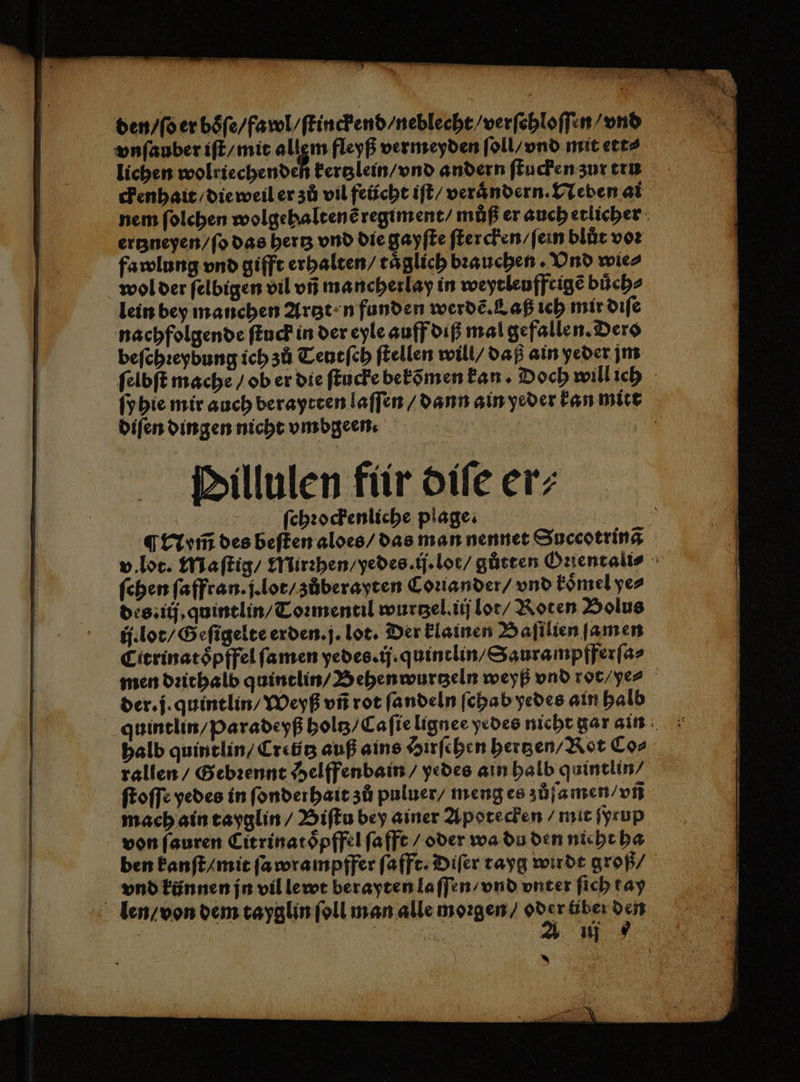 den/ſo er boͤſe/fawl/ſtinckend/neblecht/verſchloſſen/vnd
vnſauber iſt/mit allem fleyß vermeyden ſoll/vnd mit ett⸗
lichen wolriechenden kertzlein/vnd andern ſtucken zur tru
ckenhait/die weil er zuͦ vil feücht iſt/veraͤndern. Neben ai
nem ſolchen wolgehaltenẽ regiment/ muͤß er auch etlicher
ertzneyen/ſo das hertz vnd die gayſte ſtercken/ſein bluͦt voꝛ
fawlung vnd gifft erhalten/ taͤglich bꝛauchen. Vnd wie⸗
wol der ſelbigen vil vñ mancherlay in weytleuffeigẽ buͤch⸗
lein bey manchen Artzten funden werdẽ. Laß ich mir diſe
nachfolgende ſtuck in der eyle auff diß mal gefallen. Dero
beſchꝛeybung ich zuͦ Teutſch ſtellen will/ daß ain yeder jm
ſelbſt mache/ ob er die ſtucke bekõmen kan. Doch will ich
ſy hie mir auch beraytten laſſen/ dann ain yeder kan mitt
diſen dingen nicht vmbgeen.
Pillulen für diſe er⸗
ſchꝛockenliche plage.
¶ Nym̃ des beſten aloes/ das man nennet Succotrinã
v.lot. Maſtig/ Mirꝛhen/yedes.ij.lot/ guͤtten Oꝛientali⸗
ſchen ſaffran.j.lot/zuͦberayten Coꝛiander/ vnd koͤmel ye⸗
des.iij.quintlin/Toꝛmentil wurtzel.iij lot/ Roten Bolus
ij.lot/Geſigelte erden.j. lot. Der klainen Baſilien ſamen
Citrinatoͤpffel ſamen yedes.ij.quintlin/Saurampfferſa⸗
men dꝛithalb quintlin/Behenwurtzeln weyß vnd rot/ye⸗
der.j.quintlin/Weyß vñ rot ſandeln ſchab yedes ain halb
quintlin/Paradeyß holtz/Caſie lignee yedes nicht gar ain
halb quintlin/Creütz auß ains Hirſchen hertzen/Rot Co⸗
rallen/ Gebꝛennt Helffenbain/ yedes ain halb quintlin/
ſtoſſe yedes in ſonderhait zuͦ puluer/ meng es zuͦſamen/vñ
mach ain tayglin/ Biſtu bey ainer Apotecken/ mit ſyrup
von ſauren Citrinatoͤpffel ſafft/ oder wa du den nicht ha
ben kanſt/mit ſawrampffer ſafft. Diſer tayg wirdt groß/
vnd künnen jn vil lewt berayten laſſen/vnd vnter ſich tay
len/von dem tayglin ſoll man alle moꝛgen/ oder über den
A iij